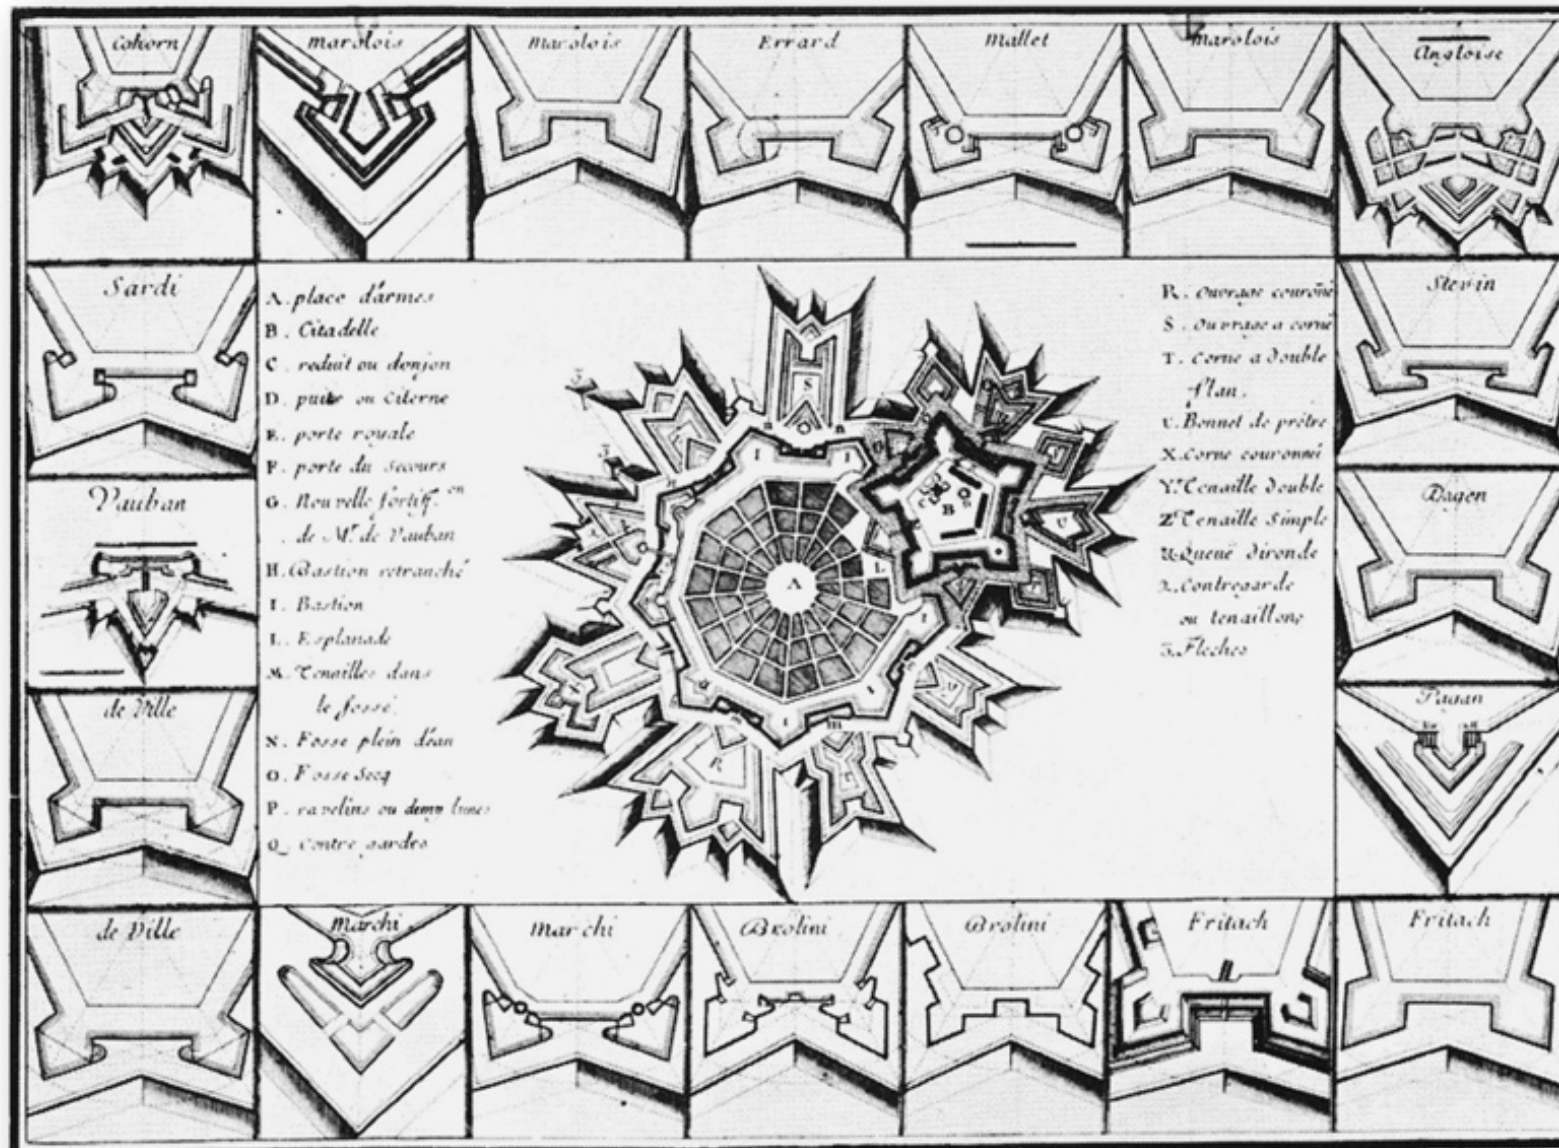 Cohorn
Marolois
Marolois
Errard
Mallet
Marolois
Angloise
Sardi
Vauban
de Ville
de Ville
Marchi
Marchi
Brolini
Brolini
Fritach
Fritach
Stevin
Dogen
Pagan
A. place d'armes
B. Citadelle
C. reduit ou donjon
D. puits ou Citerne
E. porte royale
F. porte du Secours
G. Nouvelle fortiff.en
de Mr. de Vauban
H. Bastion retranché
I. Bastion
L. Esplanade
M. Tenailles dans
le fossé.
N. Fosse plein d'eau
O. Fosse Secq
P. ravelins ou demy lunes
Q. Contre gardes
R. Ouvrage couroñé
S. Ouvrage a corne
T. Corne a double
flan.
V. Bonnet de prêtre
X. Corne couronné
Y. Tenaille double
Z. Tenaille Simple
U. Queuë dironde
2. Contregarde
ou tenaillons
3. Fleches